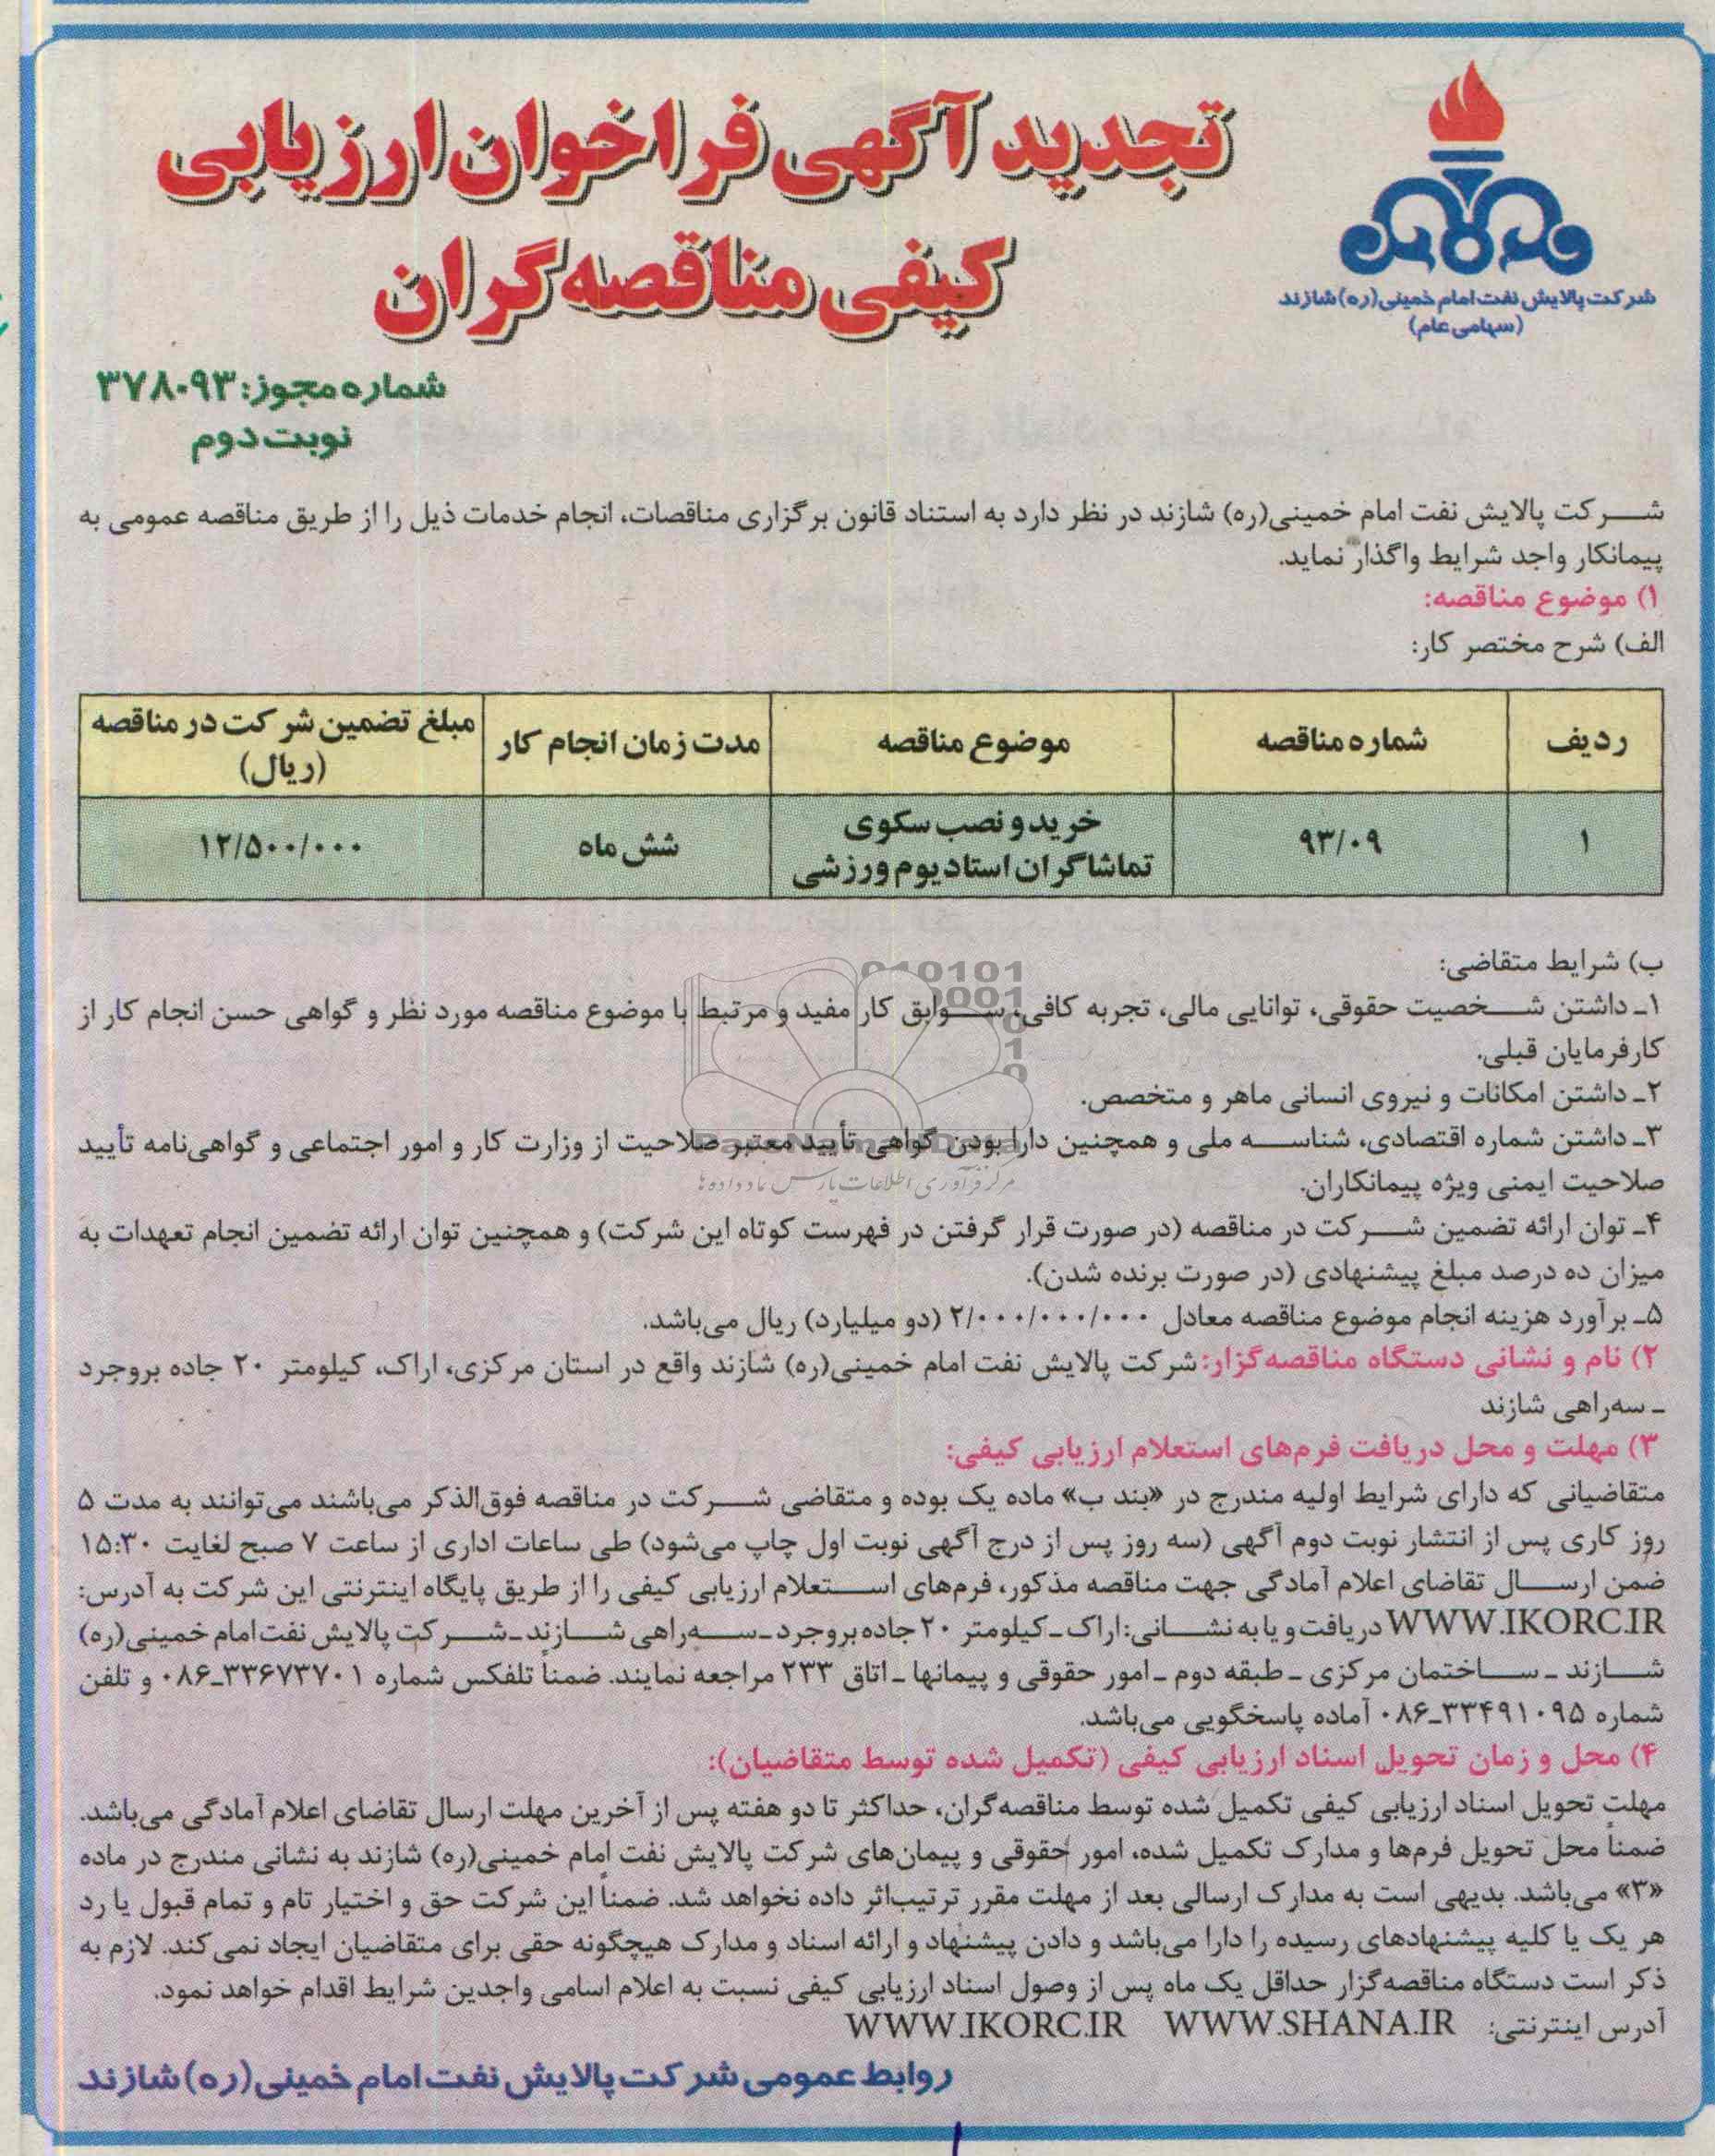 تجدید آگهی فراخوان ارزیابی
کیفی مناقصه‌گران
شرکت پالایش نفت امام خمینی(ره) شازند
(سهامی عام)
شماره مجوز: ۳۷۸۰۹۳
نوبت دوم
شرکت پالایش نفت امام خمینی(ره) شازند در نظر دارد به استناد قانون برگزاری مناقصات، انجام خدمات ذیل را از طریق مناقصه عمومی به
پیمانکار واجد شرایط واگذار نماید.
۱) موضوع مناقصه:
الف) شرح مختصر کار:
ردیف | شماره مناقصه | موضوع مناقصه | مدت زمان انجام کار | مبلغ تضمین شرکت در مناقصه (ریال)
۱ | ۹۳/۰۹ | خرید و نصب سکوی تماشاگران استادیوم ورزشی | شش ماه | ۱۲/۵۰۰/۰۰۰
ب) شرایط متقاضی:
۱ـ داشتن شخصیت حقوقی، توانایی مالی، تجربه کافی، سوابق کار مفید و مرتبط با موضوع مناقصه مورد نظر و گواهی حسن انجام کار از
کارفرمایان قبلی.
۲ـ داشتن امکانات و نیروی انسانی ماهر و متخصص.
۳ـ داشتن شماره اقتصادی، شناسه ملی و همچنین دارا بودن گواهی تأیید معتبر صلاحیت از وزارت کار و امور اجتماعی و گواهی‌نامه تأیید
مرکز فرآوری اطلاعات پارس نماد داده‌ها
صلاحیت ایمنی ویژه پیمانکاران.
۴ـ توان ارائه تضمین شرکت در مناقصه (در صورت قرار گرفتن در فهرست کوتاه این شرکت) و همچنین توان ارائه تضمین انجام تعهدات به
میزان ده درصد مبلغ پیشنهادی (در صورت برنده شدن).
۵ـ برآورد هزینه انجام موضوع مناقصه معادل ۲/۰۰۰/۰۰۰/۰۰۰ (دو میلیارد) ریال می‌باشد.
۲) نام و نشانی دستگاه مناقصه‌گزار: شرکت پالایش نفت امام خمینی(ره) شازند واقع در استان مرکزی، اراک، کیلومتر ۲۰ جاده بروجرد
ـ سه‌راهی شازند
۳) مهلت و محل دریافت فرم‌های استعلام ارزیابی کیفی:
متقاضیانی که دارای شرایط اولیه مندرج در «بند ب» ماده یک بوده و متقاضی شرکت در مناقصه فوق‌الذکر می‌باشند می‌توانند به مدت ۵
روز کاری پس از انتشار نوبت دوم آگهی (سه روز پس از درج آگهی نوبت اول چاپ می‌شود) طی ساعات اداری از ساعت ۷ صبح لغایت ۱۵:۳۰
ضمن ارسال تقاضای اعلام آمادگی جهت مناقصه مذکور، فرم‌های استعلام ارزیابی کیفی را از طریق پایگاه اینترنتی این شرکت به آدرس:
WWW.IKORC.IR دریافت و یا به نشانی: اراک ـ کیلومتر ۲۰ جاده بروجرد ـ سه‌راهی شازند ـ شرکت پالایش نفت امام خمینی(ره)
شازند ـ ساختمان مرکزی ـ طبقه دوم ـ امور حقوقی و پیمانها ـ اتاق ۲۳۳ مراجعه نمایند. ضمناً تلفکس شماره ۳۳۶۷۳۷۰۱ـ۰۸۶ و تلفن
شماره ۳۳۴۹۱۰۹۵ـ۰۸۶ آماده پاسخگویی می‌باشد.
۴) محل و زمان تحویل اسناد ارزیابی کیفی (تکمیل شده توسط متقاضیان):
مهلت تحویل اسناد ارزیابی کیفی تکمیل شده توسط مناقصه‌گران، حداکثر تا دو هفته پس از آخرین مهلت ارسال تقاضای اعلام آمادگی می‌باشد.
ضمناً محل تحویل فرم‌ها و مدارک تکمیل شده، امور حقوقی و پیمان‌های شرکت پالایش نفت امام خمینی(ره) شازند به نشانی مندرج در ماده
«۳» می‌باشد. بدیهی است به مدارک ارسالی بعد از مهلت مقرر ترتیب‌اثر داده نخواهد شد. ضمناً این شرکت حق و اختیار تام و تمام قبول یا رد
هر یک یا کلیه پیشنهادهای رسیده را دارا می‌باشد و دادن پیشنهاد و ارائه اسناد و مدارک هیچگونه حقی برای متقاضیان ایجاد نمی‌کند. لازم به
ذکر است دستگاه مناقصه‌گزار حداقل یک ماه پس از وصول اسناد ارزیابی کیفی نسبت به اعلام اسامی واجدین شرایط اقدام خواهد نمود.
آدرس اینترنتی: WWW.IKORC.IR WWW.SHANA.IR
روابط عمومی شرکت پالایش نفت امام خمینی(ره) شازند